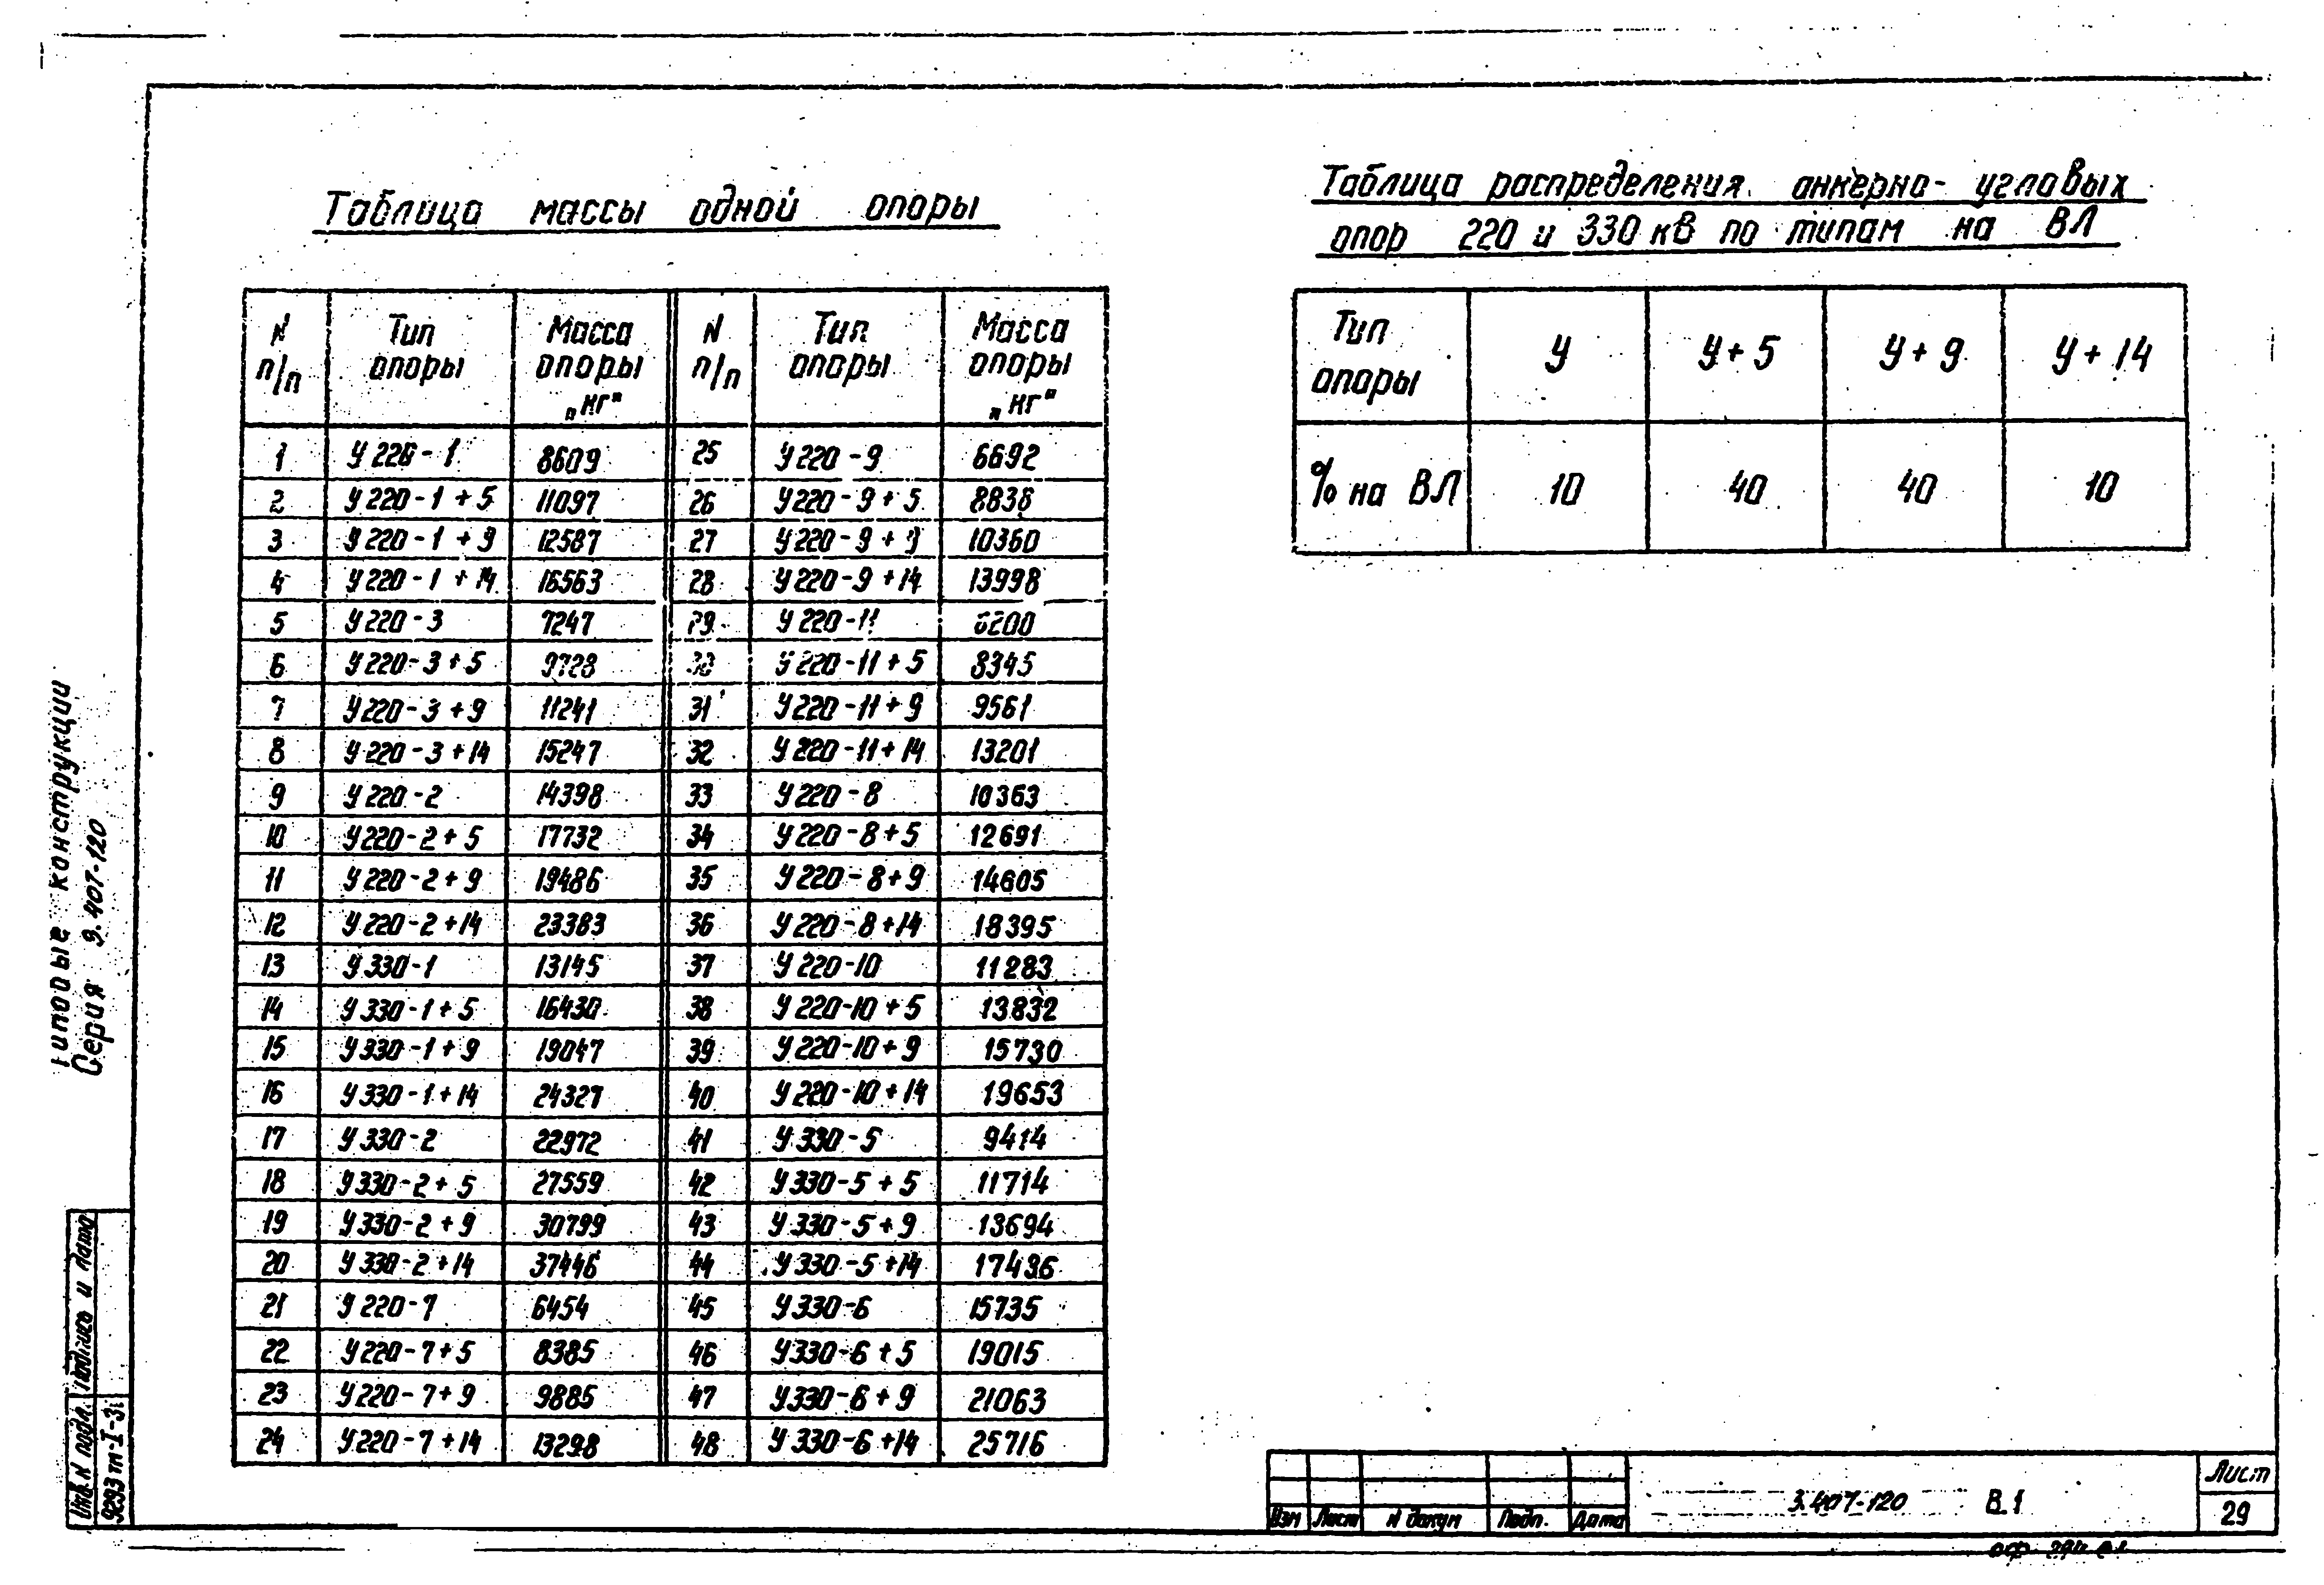 Таблица массы одной опоры
N п/п Тип опоры Масса опоры „кг" N п/п Тип опоры Масса опоры „кг"
1 У 220-1 8609 25 У 220-9 6692
2 У 220-1+5 11097 26 У 220-9+5 8838
3 У 220-1+9 12587 27 У 220-9+9 10360
4 У 220-1+14 16563 28 У 220-9+14 13998
5 У 220-3 7247 29 У 220-11 6200
6 У 220-3+5 9728 30 У 220-11+5 8345
7 У 220-3+9 11241 31 У 220-11+9 9561
8 У 220-3+14 15247 32 У 220-11+14 13201
9 У 220-2 14398 33 У 220-8 10363
10 У 220-2+5 17732 34 У 220-8+5 12691
11 У 220-2+9 19486 35 У 220-8+9 14605
12 У 220-2+14 23383 36 У 220-8+14 18395
13 У 330-1 13145 37 У 220-10 11283
14 У 330-1+5 16430 38 У 220-10+5 13832
15 У 330-1+9 19047 39 У 220-10+9 15730
16 У 330-1+14 24327 40 У 220-10+14 19653
17 У 330-2 22972 41 У 330-5 9414
18 У 330-2+5 27559 42 У 330-5+5 11714
19 У 330-2+9 30799 43 У 330-5+9 13694
20 У 330-2+14 37446 44 У 330-5+14 17436
21 У 220-7 6454 45 У 330-6 15735
22 У 220-7+5 8385 46 У 330-6+5 19015
23 У 220-7+9 9885 47 У 330-6+9 21063
24 У 220-7+14 13298 48 У 330-6+14 25716
Таблица распределения анкерно-угловых
опор 220 и 330 кВ по типам на ВЛ
Тип опоры У У+5 У+9 У+14
% на ВЛ 10 40 40 10
Типовые конструкции
Серия 3.407-120
Инв. N подл. Подпись и дата
9293тм-I-31
Изм Лист N докум Подп. Дата
3.407-120 В.1
Лист
29